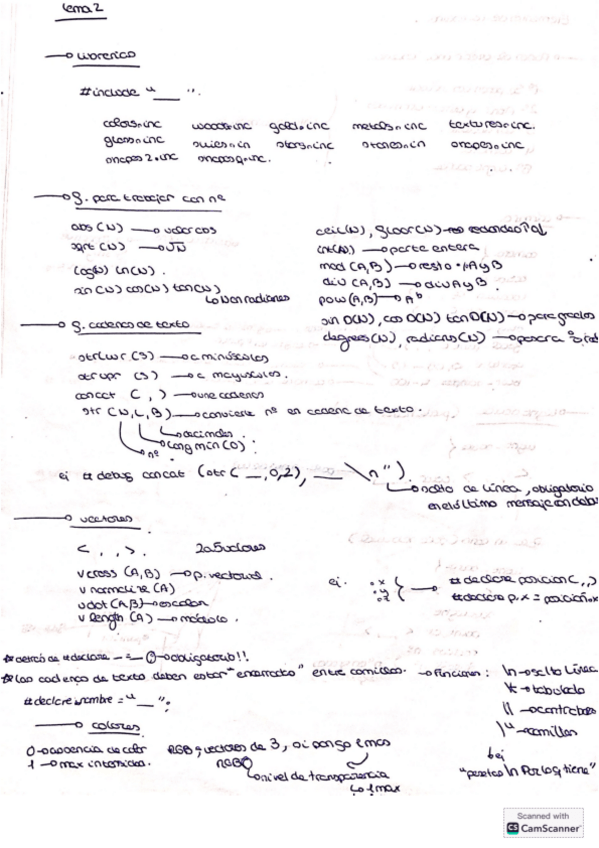 tema 2
→ librerias
#include "___".
colors.inc woods.inc golds.inc metals.inc textures.inc.
glass.inc skies.in stars.inc stones.in shapes.inc
shapes2.inc shapesq.inc.
→ f. para trabajar con nº
abs (N) → valor abs ceil(N), floor(N) → redondeo
sqrt (N) → √N int(N) → parte entera
log(N) ln(N). mod (A,B) → resto A y B
sin (N) cos(N) tan(N) div (A,B) → div A y B
↳ N en radianes pow (A,B) → A^b
sin D(N), cos D(N) tan D(N) → para grados
degrees(N), radians(N) → pasar a
→ f. cadenas de texto
strlwr (S) → a minúsculas
strupr (S) → a mayusculas.
concat ( , ) → une cadenas
str (N,L,B) → convierte nº en cadena de texto.
↳ decimales.
↳ long min (0).
nº
ej #debug concat (str( __,0,2), ___ \n").
↳ salto de línea, obligatorio
en el último mensaje con debug
→ vectores
< , , >. 2 a 5 valores
vcross (A,B) → p. vectorial.
vnormalize (A)
vdot (A,B) → escalar
vlength (A) → módulo.
ej. .x .y .z } → #declare posicion ( , , )
#declare p.x = posición.x
* detrás de #declare _ = _ ; → obligatorio!!
* las cadenas de texto deben estar "encerradas" entre comillas. → funciones: \n → salto línea
\t → tabulado
#declare nombre = "___";
\\ → contrabarra
\" → comillas
→ colores
0 → ausencia de color RGB → vectores de 3, si pongo 4 mas
1 → max intensidad. RGB
↳ nivel de transparencia
↳ 1 max
ej
Scanned with
CS CamScanner